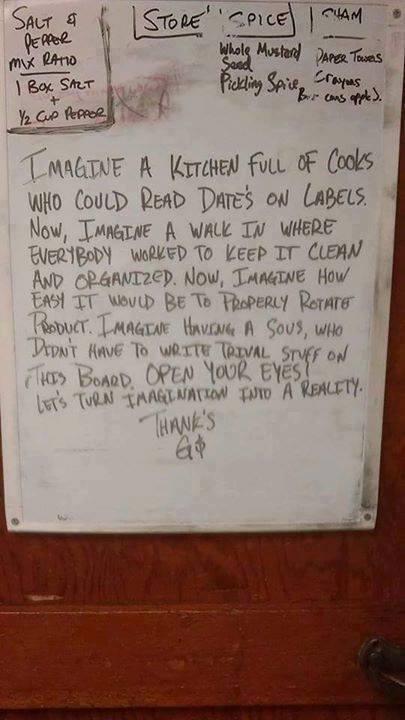 SALT &
PEPPER
MIX RATIO
1 BOX SALT
+
1/2 CUP PEPPER
STORE
SPICE
Whole Mustard
Seed
Pickling Spice
SHAM
PAPER TOWELS
Crayons
cans
IMAGINE A KITCHEN FULL OF COOKS
WHO COULD READ DATE'S ON LABELS.
NOW, IMAGINE A WALK IN WHERE
EVERYBODY WORKED TO KEEP IT CLEAN
AND ORGANIZED. NOW, IMAGINE HOW
EASY IT WOULD BE TO PROPERLY ROTATE
PRODUCT. IMAGINE HAVING A SOUS, WHO
DIDN'T HAVE TO WRITE TRIVAL STUFF ON
THIS BOARD. OPEN YOUR EYES!
LET'S TURN IMAGINATION INTO A REALITY.
THANK'S
G$